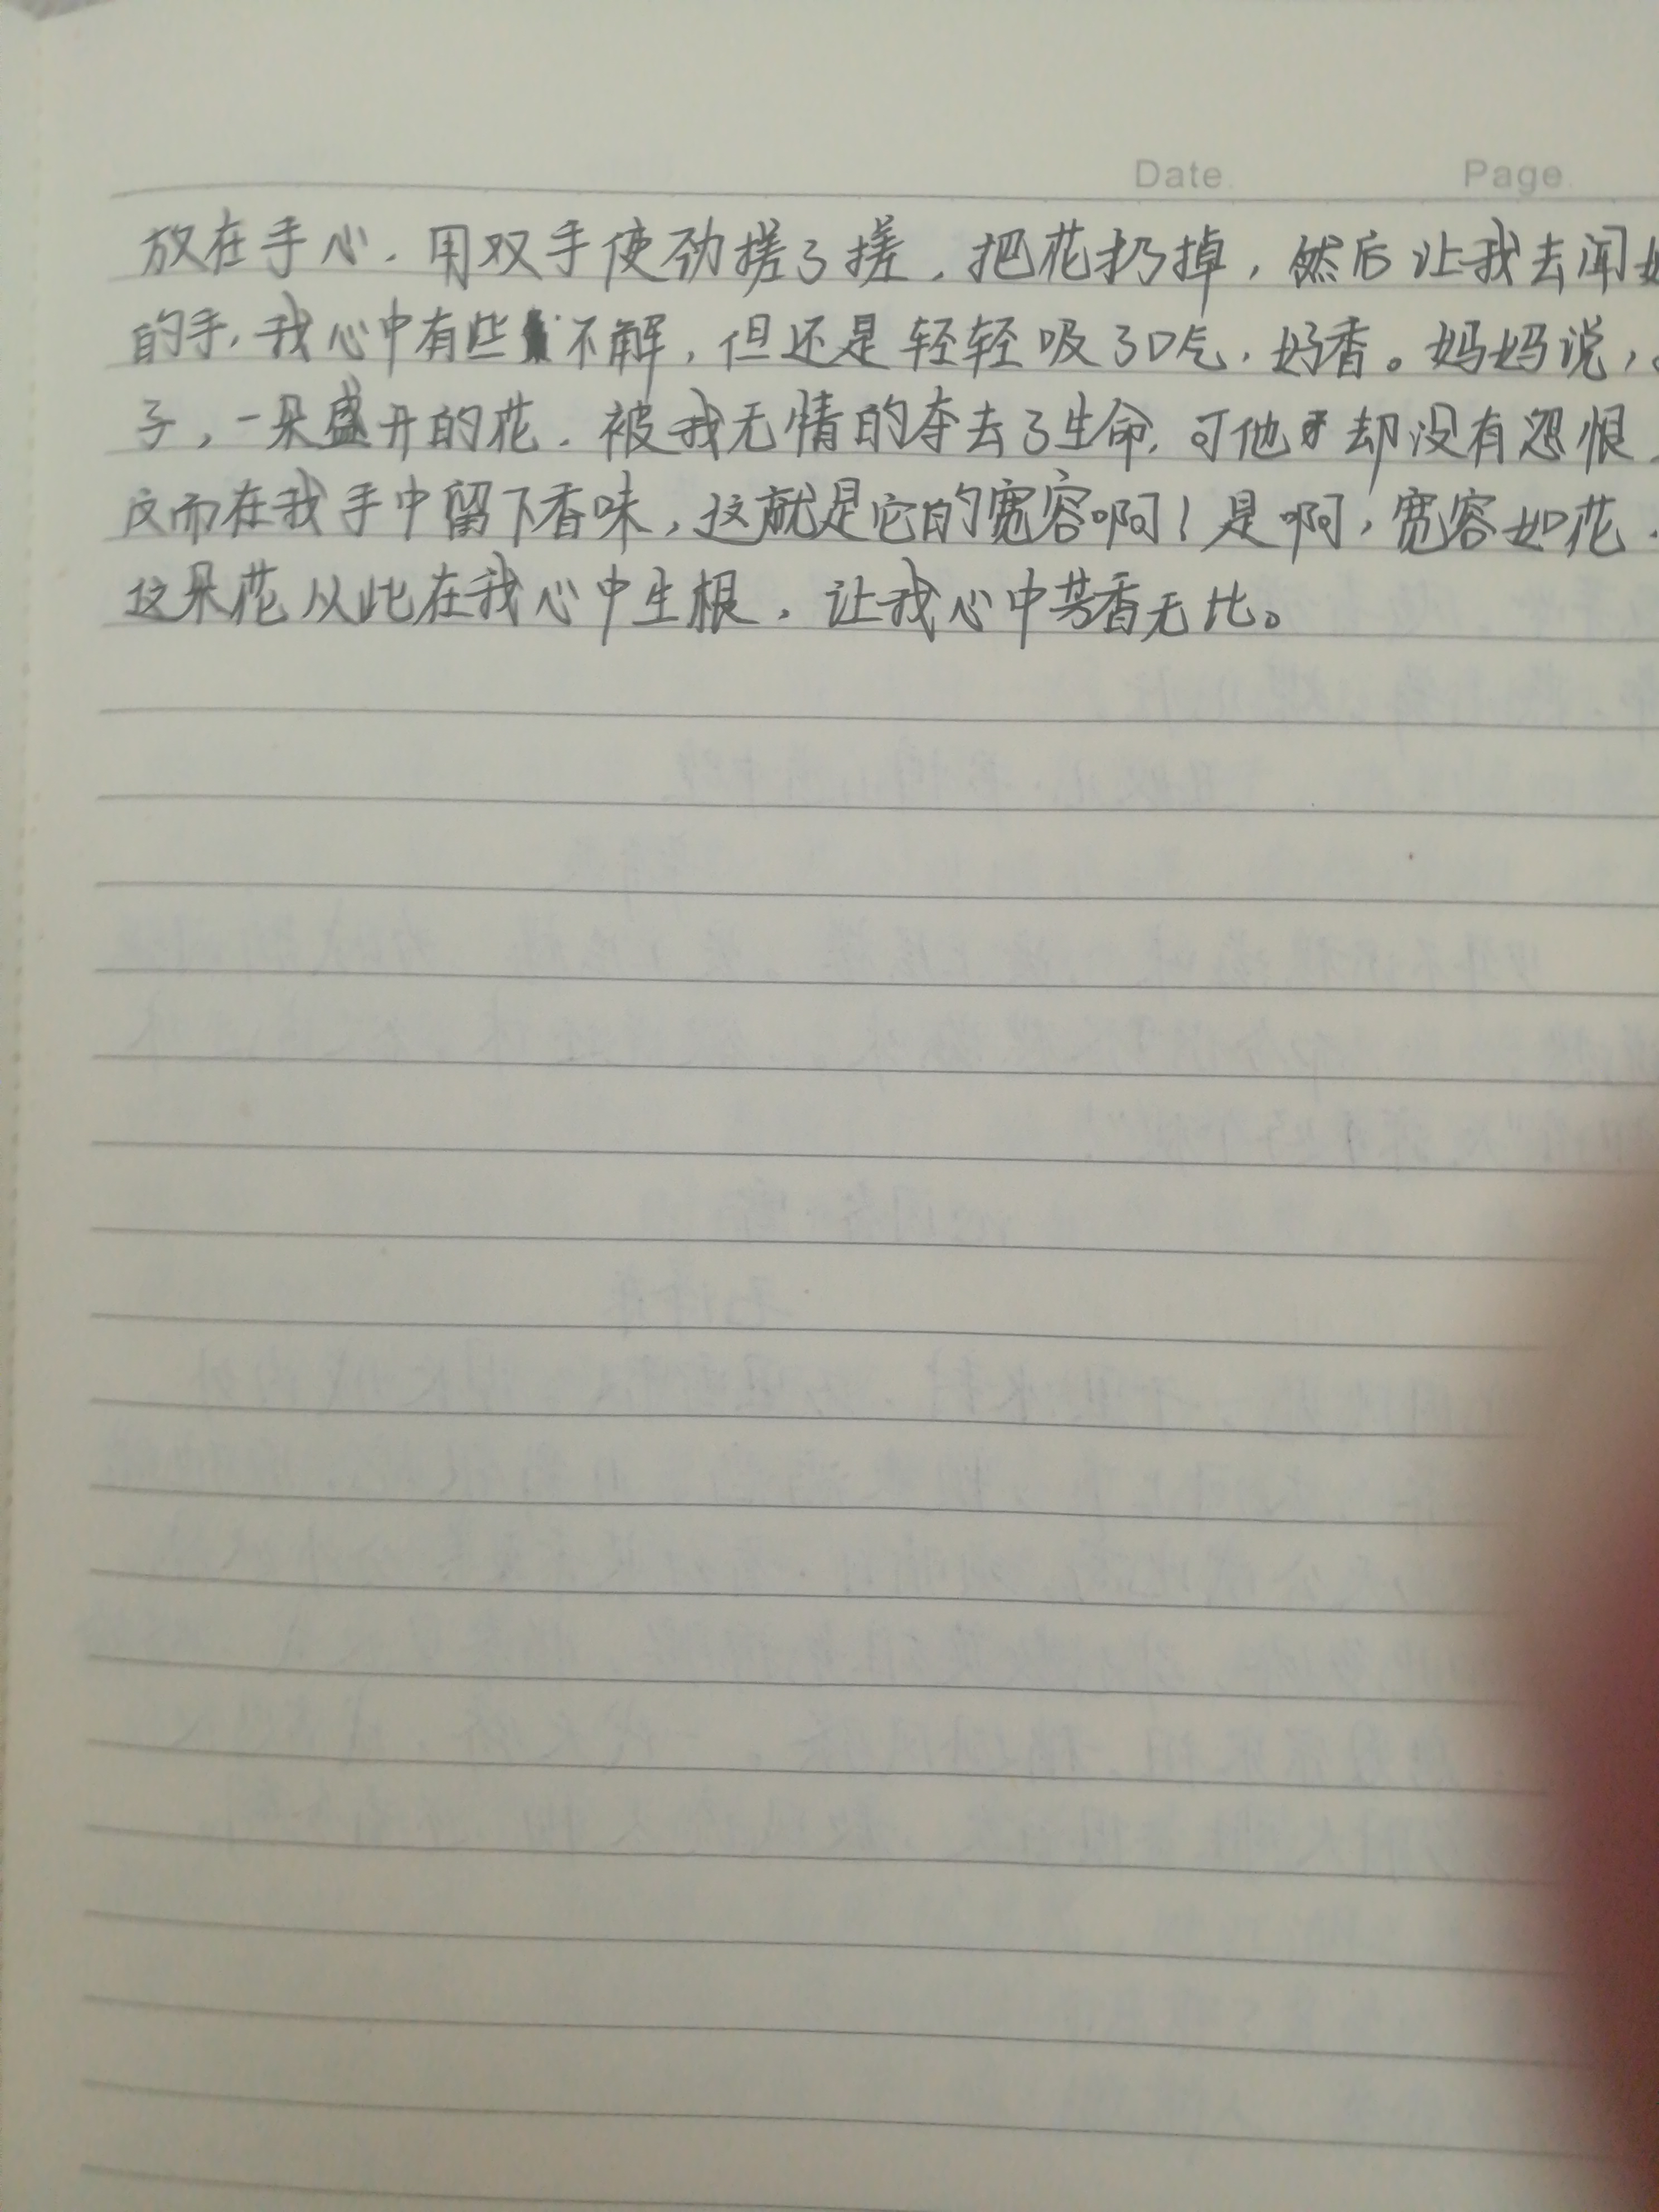 Date. Page
放在手心，用双手使劲搓了搓，把花扔掉，然后让我去闻
的手，我心中有些不解，但还是轻轻吸了口气，好香。妈妈说，
子，一朵盛开的花，被我无情的夺去了生命，可他却没有怨恨，
反而在我手中留下香味，这就是它的宽容啊！是啊，宽容如花，
这朵花从此在我心中生根，让我心中芳香无比。